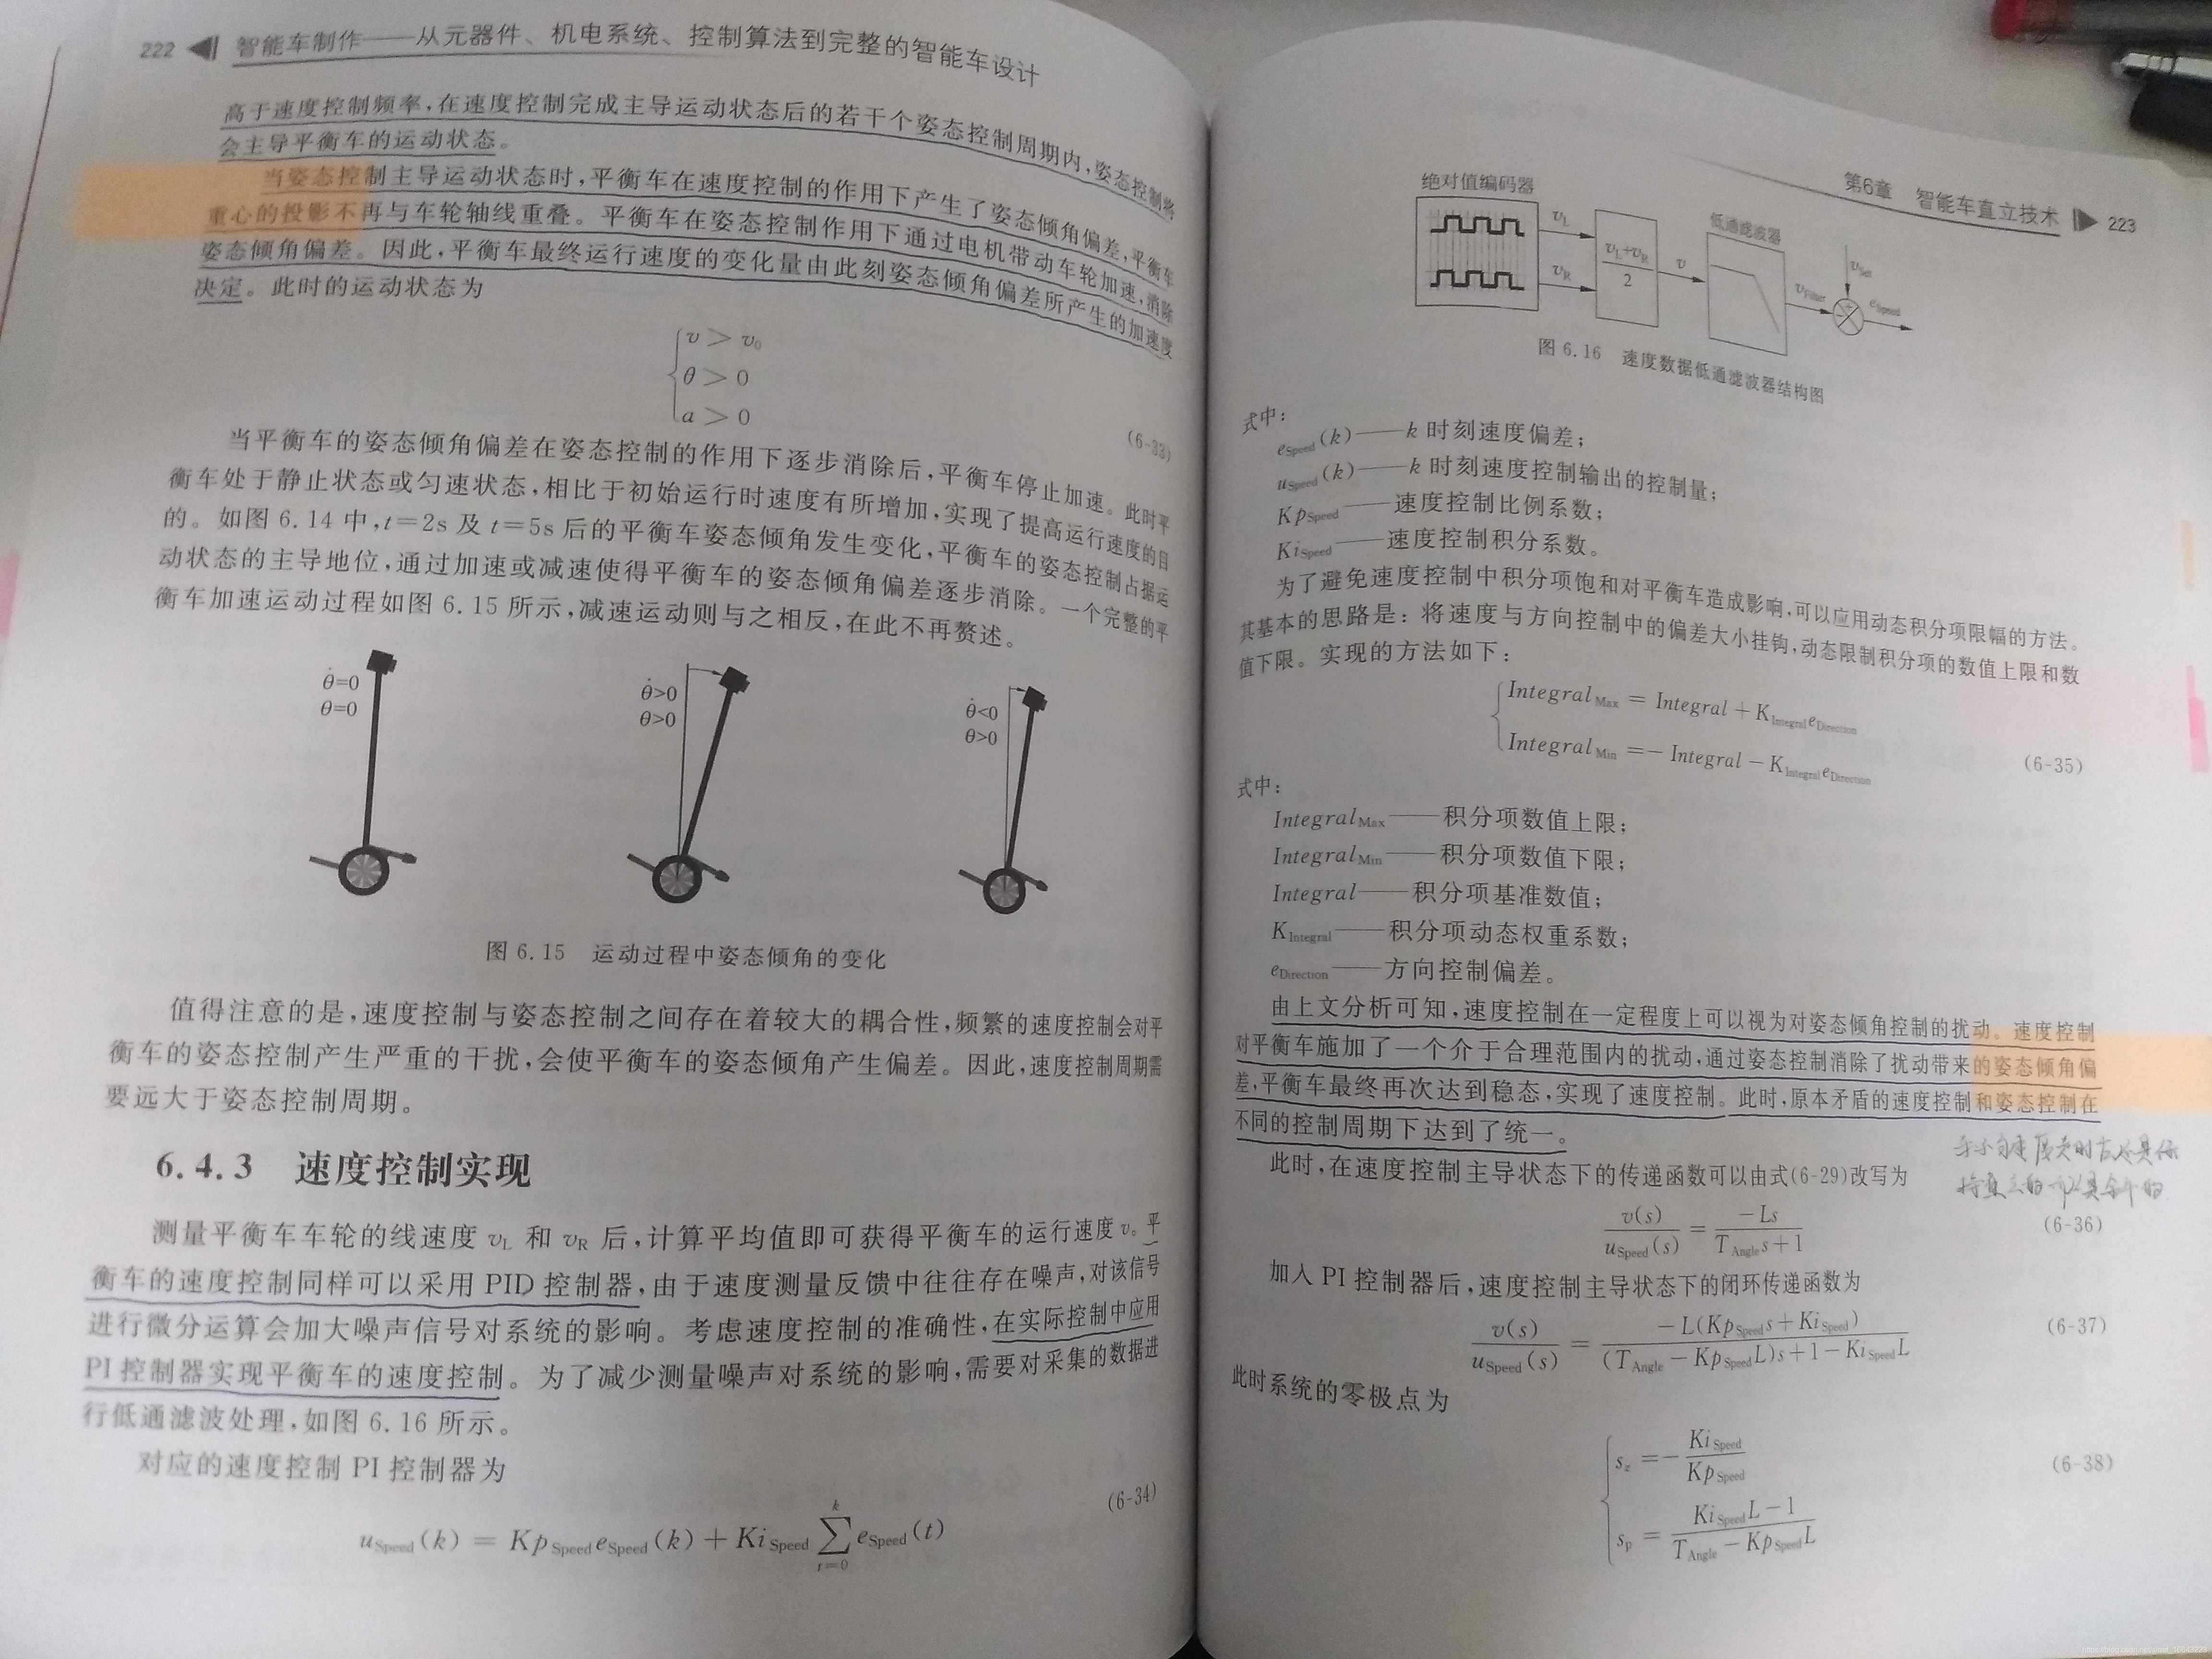 222 ◀ 智能车制作——从元器件、机电系统、控制算法到完整的智能车设计
高于速度控制频率,在速度控制完成主导运动状态后的若干个姿态控制周期内,姿态控制将
会主导平衡车的运动状态。
当姿态控制主导运动状态时,平衡车在速度控制的作用下产生了姿态倾角偏差,平衡车
重心的投影不再与车轮轴线重叠。平衡车在姿态控制作用下通过电机带动车轮加速,消除
姿态倾角偏差。因此,平衡车最终运行速度的变化量由此刻姿态倾角偏差所产生的加速度
决定。此时的运动状态为
v > v₀
θ > 0
a > 0
(6-33)
当平衡车的姿态倾角偏差在姿态控制的作用下逐步消除后,平衡车停止加速。此时平
衡车处于静止状态或匀速状态,相比于初始运行时速度有所增加,实现了提高运行速度的目
的。如图 6.14 中,t=2s 及 t=5s 后的平衡车姿态倾角发生变化,平衡车的姿态控制占据运
动状态的主导地位,通过加速或减速使得平衡车的姿态倾角偏差逐步消除。一个完整的平
衡车加速运动过程如图 6.15 所示,减速运动则与之相反,在此不再赘述。
θ̇=0
θ=0
θ̇>0
θ>0
θ̇<0
θ>0
图 6.15 运动过程中姿态倾角的变化
值得注意的是,速度控制与姿态控制之间存在着较大的耦合性,频繁的速度控制会对平
衡车的姿态控制产生严重的干扰,会使平衡车的姿态倾角产生偏差。因此,速度控制周期需
要远大于姿态控制周期。
6.4.3 速度控制实现
测量平衡车车轮的线速度 v_L 和 v_R 后,计算平均值即可获得平衡车的运行速度 v。平
衡车的速度控制同样可以采用 PID 控制器,由于速度测量反馈中往往存在噪声,对该信号
进行微分运算会加大噪声信号对系统的影响。考虑速度控制的准确性,在实际控制中应用
PI 控制器实现平衡车的速度控制。为了减少测量噪声对系统的影响,需要对采集的数据进
行低通滤波处理,如图 6.16 所示。
对应的速度控制 PI 控制器为
u_Speed(k) = Kp_Speed e_Speed(k) + Ki_Speed ∑_{t=0}^{k} e_Speed(t)
(6-34)
第6章 智能车直立技术 ▶ 223
绝对值编码器
v_L
v_R
(v_L+v_R)/2
v
低通滤波器
v_Filter
v_Set
+
−
e_Speed
图 6.16 速度数据低通滤波器结构图
式中:
e_Speed(k)——k 时刻速度偏差;
u_Speed(k)——k 时刻速度控制输出的控制量;
Kp_Speed——速度控制比例系数;
Ki_Speed——速度控制积分系数。
为了避免速度控制中积分项饱和对平衡车造成影响,可以应用动态积分项限幅的方法。
其基本的思路是:将速度与方向控制中的偏差大小挂钩,动态限制积分项的数值上限和数
值下限。实现的方法如下:
Integral_Max = Integral + K_Integral e_Direction
Integral_Min = − Integral − K_Integral e_Direction
(6-35)
式中:
Integral_Max——积分项数值上限;
Integral_Min——积分项数值下限;
Integral——积分项基准数值;
K_Integral——积分项动态权重系数;
e_Direction——方向控制偏差。
由上文分析可知,速度控制在一定程度上可以视为对姿态倾角控制的扰动。速度控制
对平衡车施加了一个介于合理范围内的扰动,通过姿态控制消除了扰动带来的姿态倾角偏
差,平衡车最终再次达到稳态,实现了速度控制。此时,原本矛盾的速度控制和姿态控制在
不同的控制周期下达到了统一。
此时,在速度控制主导状态下的传递函数可以由式(6-29)改写为
v(s)/u_Speed(s) = −Ls/(T_Angle s+1)
(6-36)
加入 PI 控制器后,速度控制主导状态下的闭环传递函数为
v(s)/u_Speed(s) = −L(Kp_Speed s+Ki_Speed)/((T_Angle − Kp_Speed L)s+1−Ki_Speed L)
(6-37)
此时系统的零极点为
s_z = −Ki_Speed/Kp_Speed
s_p = (Ki_Speed L−1)/(T_Angle − Kp_Speed L)
(6-38)